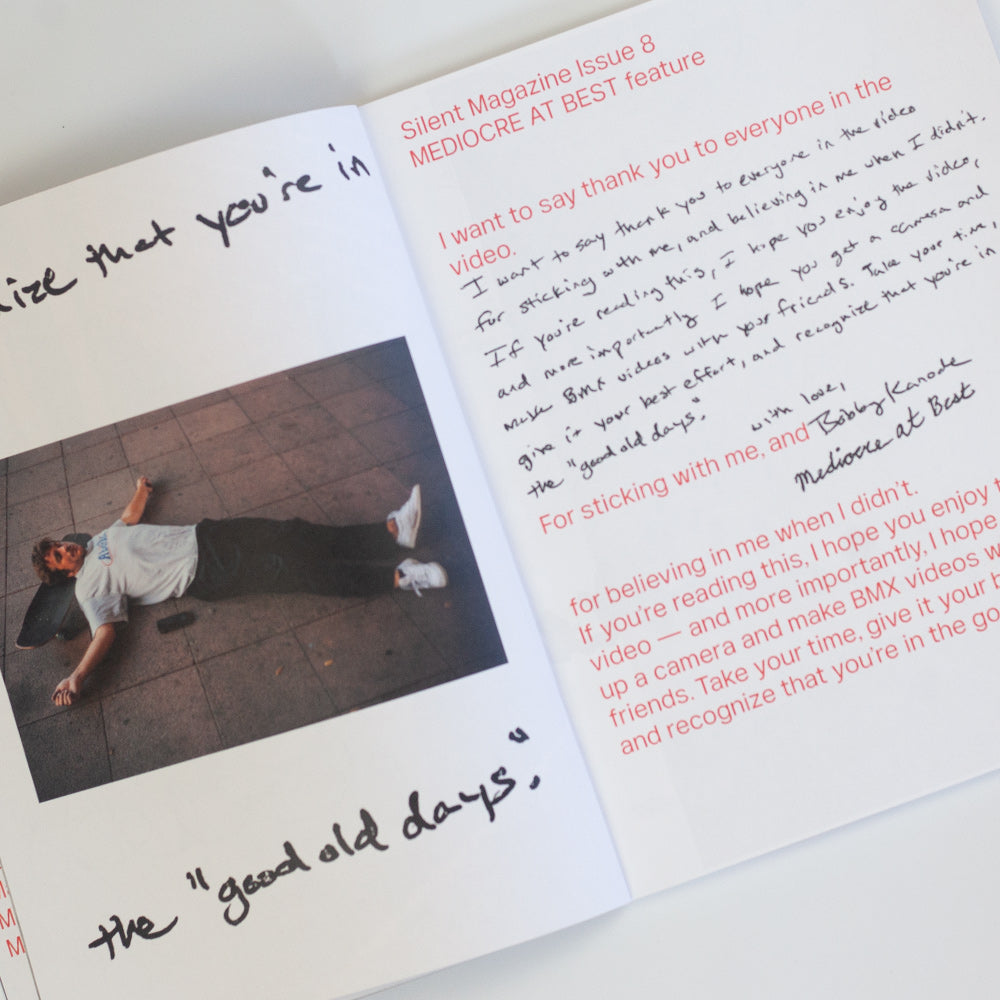 that you're in
the "good old days."
Silent Magazine Issue 8
MEDIOCRE AT BEST feature
I want to say thank you to everyone in the
video.
I want to say thank you to everyone in the video
for sticking with me, and believing in me when I didn't.
If you're reading this, I hope you enjoy the video,
and more importantly I hope you get a camera and
make BMX videos with your friends. Take your time,
give it your best effort, and recognize that you're in
the "good old days."
with love,
For sticking with me, and Bobby Kanode
Mediocre at Best
for believing in me when I didn't.
If you're reading this, I hope you enjoy
video — and more importantly, I hope
up a camera and make BMX videos
friends. Take your time, give it your
and recognize that you're in the
M
M
M